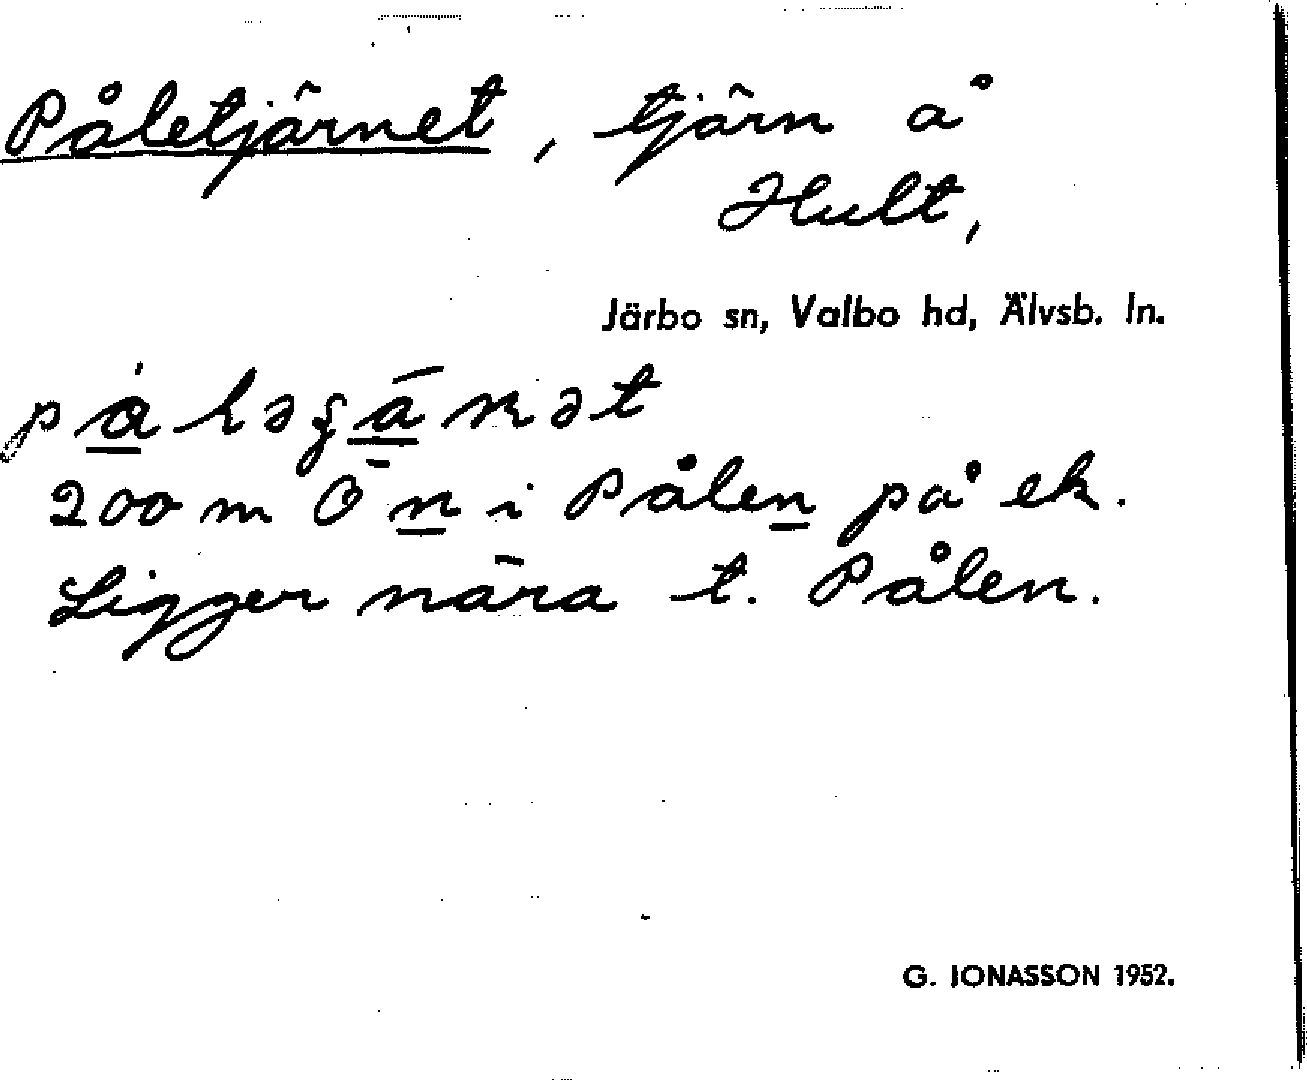 Påletjärnet, tjärn å
Hult,
Järbo sn, Valbo hd, Älvsb. ln.
200 m Ö n i Pålen på ek.
Ligger nära t. Pålen.
G. JONASSON 1952.